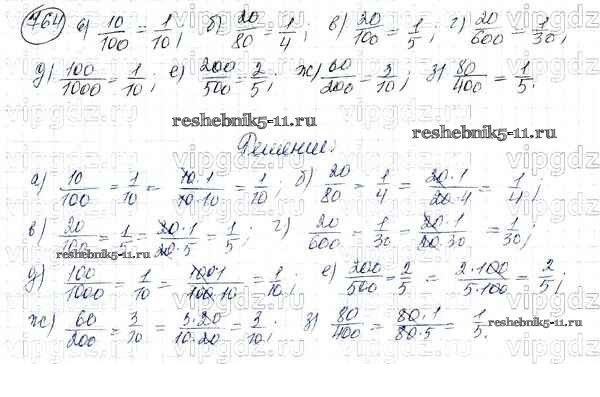 764 а) 10/100 = 1/10; б) 20/80 = 1/4; в) 20/100 = 1/5; г) 20/600 = 1/30;
д) 100/1000 = 1/10; е) 200/500 = 2/5; ж) 60/200 = 3/10; з) 80/400 = 1/5.
reshebnik5-11.ru reshebnik5-11.ru
Решение:
а) 10/100 = 1/10 = 10·1/10·10 = 1/10; б) 20/80 = 1/4 = 20·1/20·4 = 1/4;
в) 20/100 = 1/5 = 20·1/20·5 = 1/5; г) 20/600 = 1/30 = 20·1/20·30 = 1/30;
reshebnik5-11.ru
д) 100/1000 = 1/10 = 100·1/100·10 = 1/10; е) 200/500 = 2/5 = 2·100/5·100 = 2/5;
ж) 60/200 = 3/10 = 3·20/10·20 = 3/10; з) 80/400 = 80·1/80·5 = 1/5.
reshebnik5-11.ru
vipgdz.ru